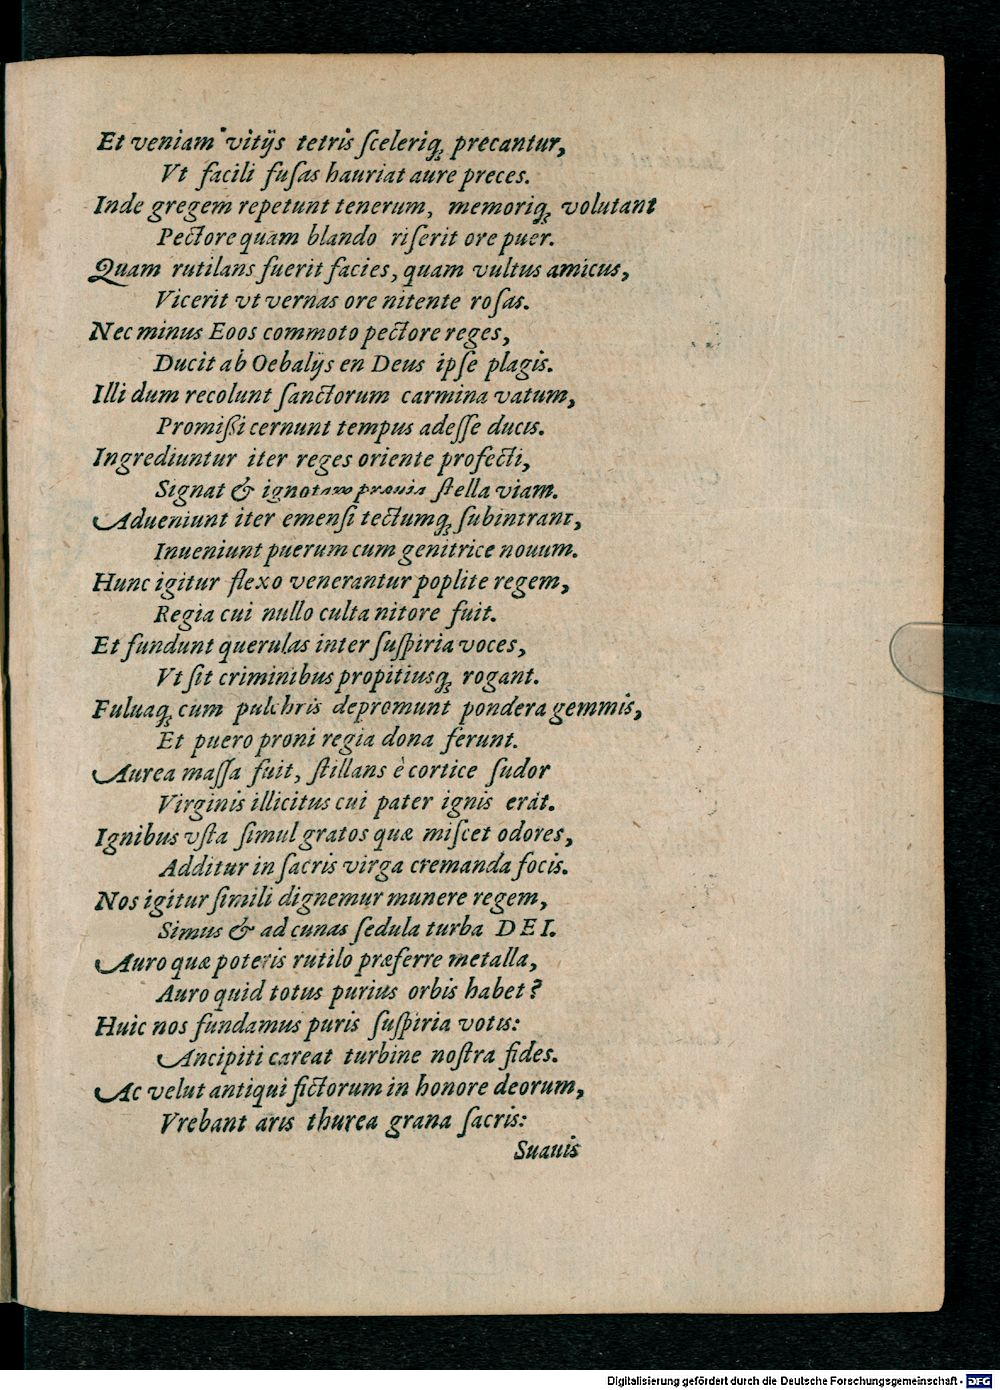 Et veniam vitijs tetris ſceleriq́; precantur,
Vt facili fuſas hauriat aure preces.
Inde gregem repetunt tenerum, memoriq́; volutant
Pectore quam blando riſerit ore puer.
Quam rutilans fuerit facies, quam vultus amicus,
Vicerit vt vernas ore nitente roſas.
Nec minus Eoos commoto pectore reges,
Ducit ab Oebalijs en Deus ipſe plagis.
Illi dum recolunt ſanctorum carmina vatum,
Promißi cernunt tempus adeſſe ducis.
Ingrediuntur iter reges oriente profecti,
Signat & ignotam prævia ſtella viam.
Adueniunt iter emenſi tectumq́; ſubintrant,
Inueniunt puerum cum genitrice nouum.
Hunc igitur flexo venerantur poplite regem,
Regia cui nullo culta nitore fuit.
Et fundunt querulas inter ſuſpiria voces,
Vt ſit criminibus propitiusq́; rogant.
Fuluaq́; cum pulchris depromunt pondera gemmis,
Et puero proni regia dona ferunt.
Aurea maſſa fuit, ſtillans è cortice ſudor
Virginis illicitus cui pater ignis erat.
Ignibus vſta ſimul gratos quæ miſcet odores,
Additur in ſacris virga cremanda focis.
Nos igitur ſimili dignemur munere regem,
Simus & ad cunas ſedula turba DEI.
Auro quæ poteris rutilo præferre metalla,
Auro quid totus purius orbis habet?
Huic nos fundamus puris ſuſpiria votis:
Ancipiti careat turbine noſtra fides.
Ac velut antiqui fictorum in honore deorum,
Vrebant aris thurea grana ſacris:
Suauis
Digitalisierung gefördert durch die Deutsche Forschungsgemeinschaft - DFG